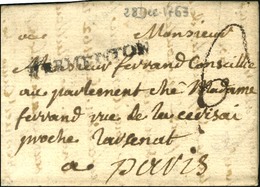 28 Dec 1763
Monsieur
VERMENTON
Monsieur ferrand Conseillé
au parlement ché Madame
ferrand rue de la cerisai
proche larsenat
a paris